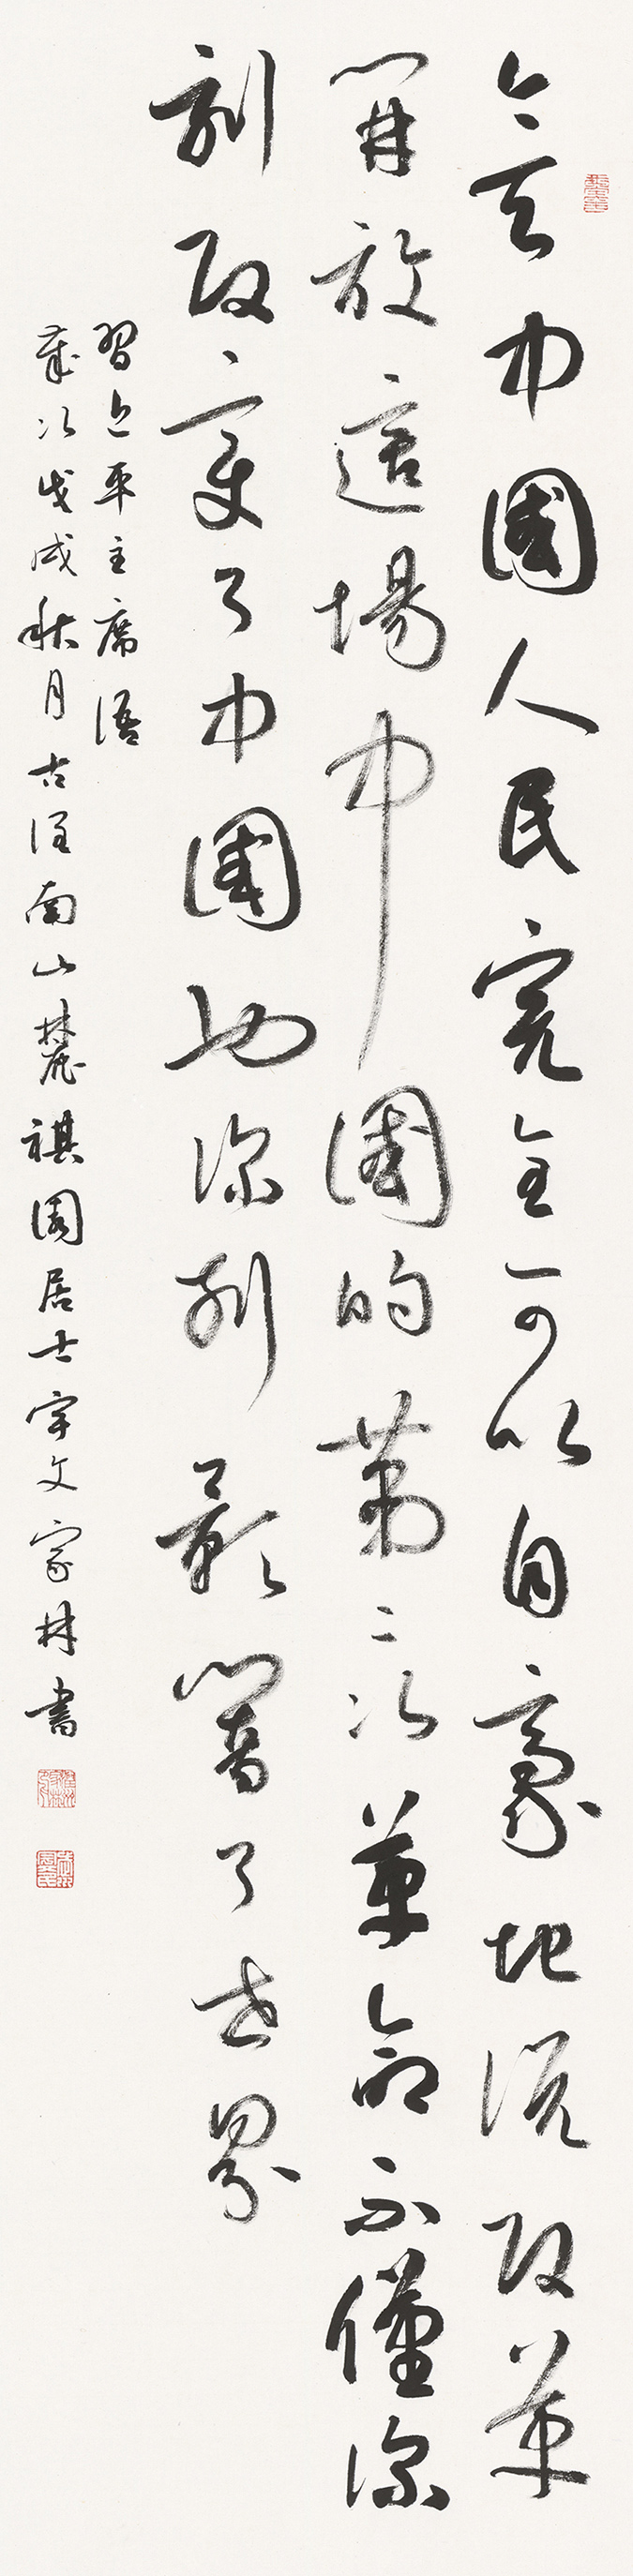 今天中國人民完全可以自豪地説改革
開放這場中國的第二次革命不僅深
刻改變了中國也深刻影響了世界
習近平主席語
歲次戊戌秋月古潭南山麓祺園居士宇文家林書